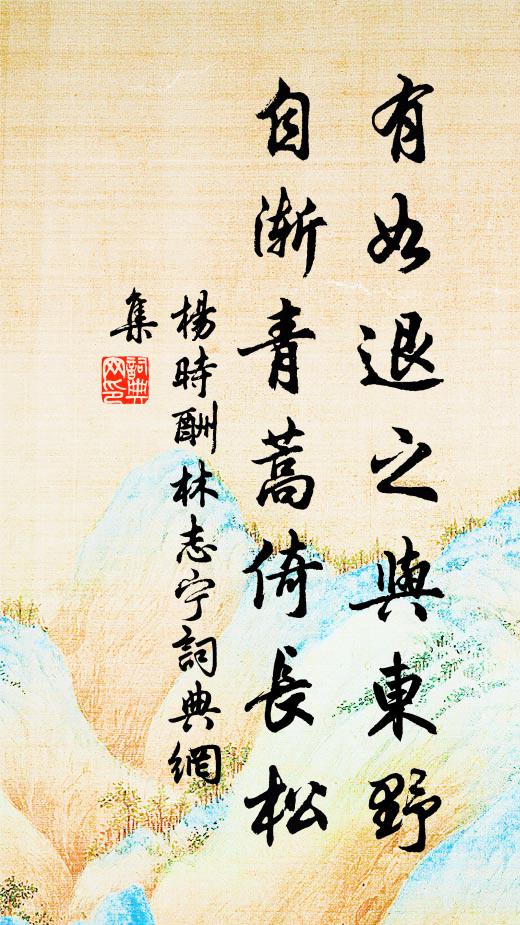 有如退之與東野
自漸青蒿倚長松
楊時酬林志宁詞典網
集
詞典網印